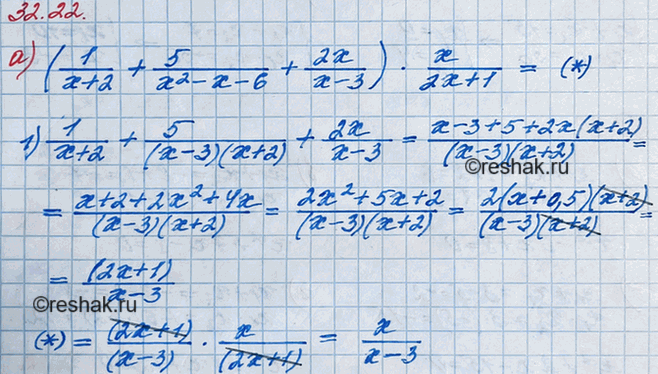 32.22.
а) (1/(x+2) + 5/(x²-x-6) + 2x/(x-3)) · x/(2x+1) = (*)
1) 1/(x+2) + 5/((x-3)(x+2)) + 2x/(x-3) = (x-3+5+2x(x+2))/((x-3)(x+2)) =
©reshak.ru
= (x+2+2x²+4x)/((x-3)(x+2)) = (2x²+5x+2)/((x-3)(x+2)) = (2(x+0,5)(x+2))/((x-3)(x+2)) =
= (2x+1)/(x-3)
©reshak.ru
(*) = (2x+1)/(x-3) · x/(2x+1) = x/(x-3)